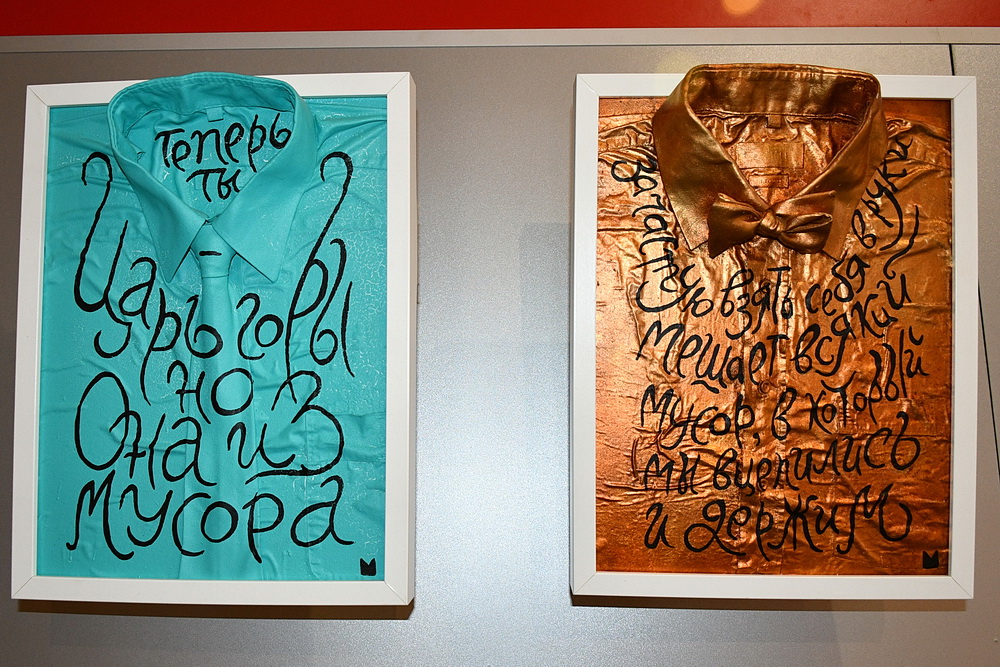 Теперь
ты
Царь горы
но
Она из
мусора
Зачастую взять себя в руки
мешает всякий
мусор, в который
мы вцепились
и держим